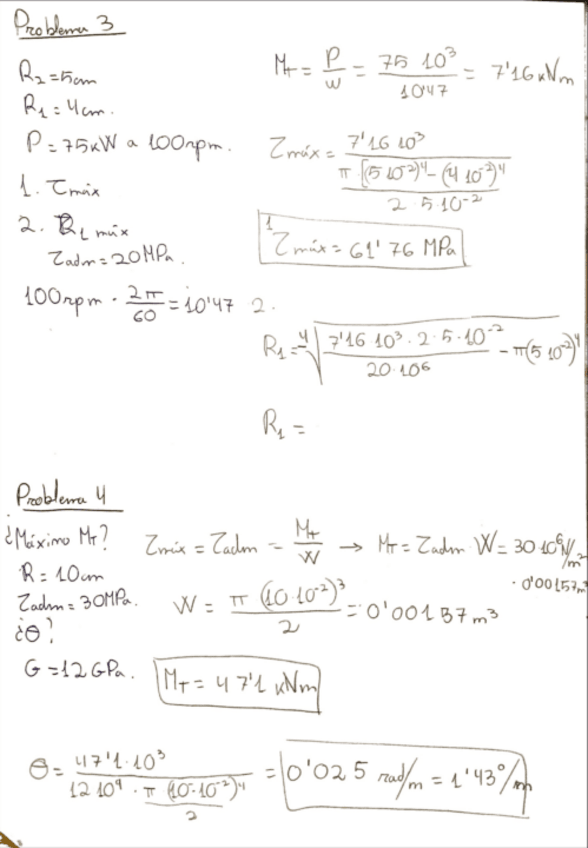 Problema 3
R₂ = 5cm
R₁ = 4cm.
P = 75kW a 100rpm.
1. τmáx
2. R₁ máx
τadm = 20MPa.
100rpm · 2π/60 = 10'47
M_T = P/w = 75 10³/10'47 = 7'16 kNm
τmáx = 7'16 10³/(π [(5 10⁻²)⁴ - (4 10⁻²)⁴]/(2 · 5 · 10⁻²))
1 τmáx = 61'76 MPa
2.
R₁ = ⁴√(7'16 · 10³ · 2 · 5 · 10⁻²/(20 · 10⁶) - π(5 10⁻²)⁴)
R₁ =
Problema 4
¿Máximo M_T?
R = 10cm
τadm = 30MPa.
¿θ?
G = 12GPa.
τmáx = τadm = M_T/W → M_T = τadm · W = 30 10⁶ N/m²
· 0'00157m³
W = π (10 · 10⁻²)³/2 = 0'00157m³
M_T = 47'1 kNm
θ = 47'1 · 10³/(12 10⁹ · π (10 · 10⁻²)⁴/2) = 0'025 rad/m = 1'43°/m